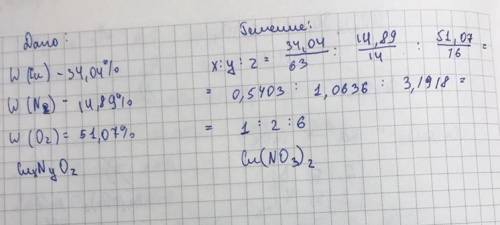 Дано:
W (Cu) - 34,04%
W (N2) - 14,89%
W (O2) = 51,07%
CuxNyOz
Решение:
x : y : z = 34,04/63 : 14,89/14 : 51,07/16 =
= 0,5403 : 1,0636 : 3,1918 =
= 1 : 2 : 6
Cu(NO3)2